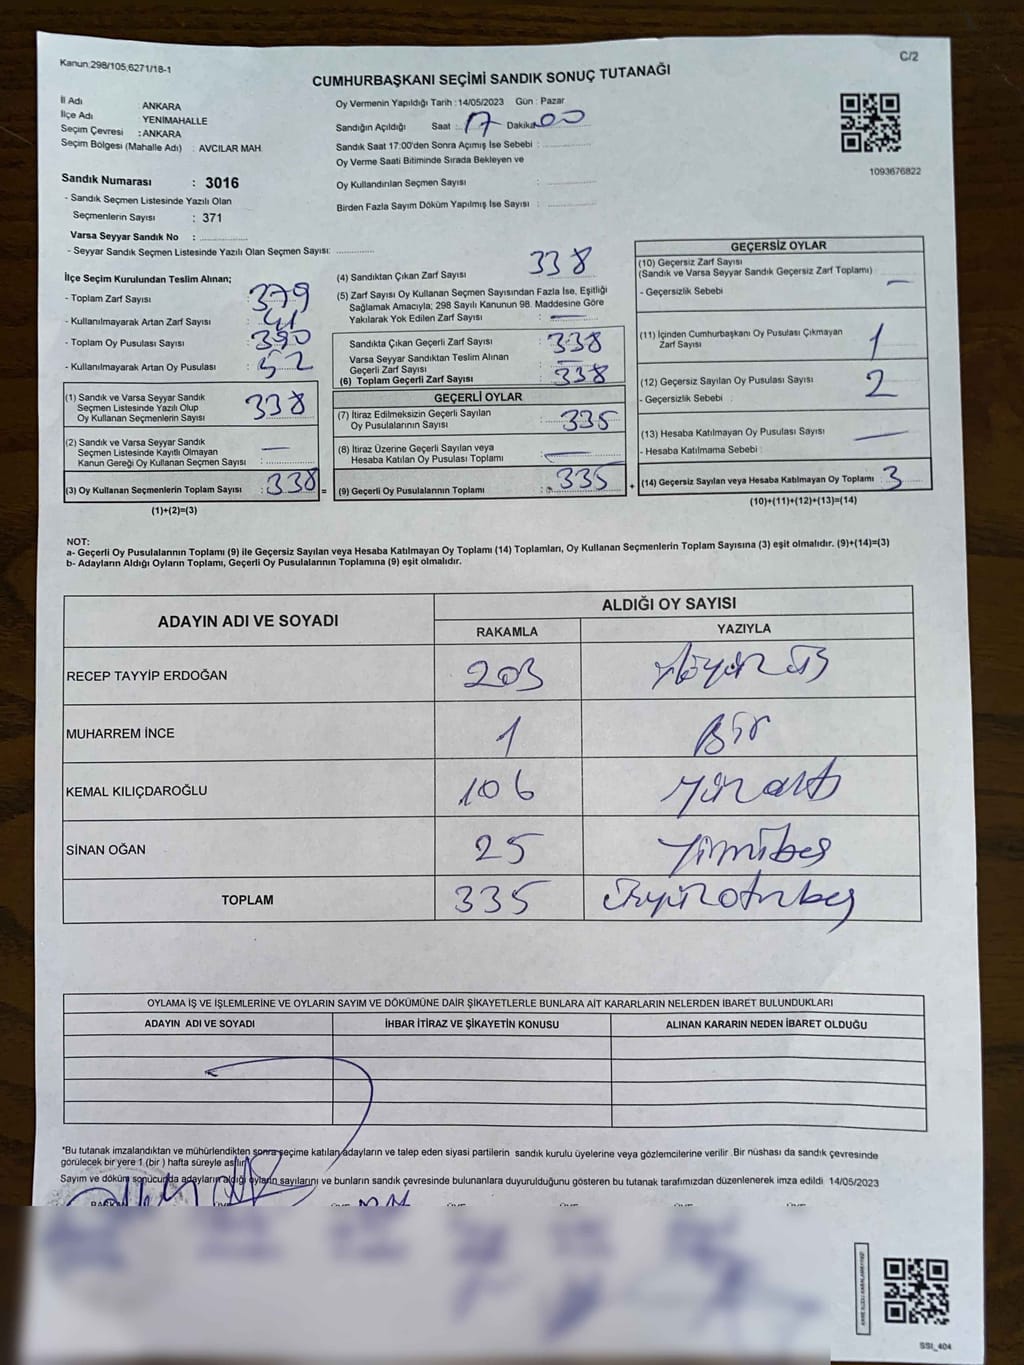 Kanun:298/105,6271/18-1
C/2
CUMHURBAŞKANI SEÇİMİ SANDIK SONUÇ TUTANAĞI
İl Adı : ANKARA
İlçe Adı : YENİMAHALLE
Seçim Çevresi : ANKARA
Seçim Bölgesi (Mahalle Adı) : AVCILAR MAH.
Oy Vermenin Yapıldığı Tarih :14/05/2023 Gün : Pazar
Sandığın Açıldığı Saat : 17 Dakika 00
Sandık Saat 17:00'den Sonra Açımış İse Sebebi :
Oy Verme Saati Bitiminde Sırada Bekleyen ve
Oy Kullandırılan Seçmen Sayısı :
Birden Fazla Sayım Döküm Yapılmış İse Sayısı :
1093676822
Sandık Numarası : 3016
- Sandık Seçmen Listesinde Yazılı Olan
Seçmenlerin Sayısı : 371
Varsa Seyyar Sandık No :
- Seyyar Sandık Seçmen Listesinde Yazılı Olan Seçmen Sayısı:
İlçe Seçim Kurulundan Teslim Alınan;
- Toplam Zarf Sayısı : 379
- Kullanılmayarak Artan Zarf Sayısı : 41
- Toplam Oy Pusulası Sayısı : 390
- Kullanılmayarak Artan Oy Pusulası : 52
(1) Sandık ve Varsa Seyyar Sandık
Seçmen Listesinde Yazılı Olup
Oy Kullanan Seçmenlerin Sayısı : 338
(2) Sandık ve Varsa Seyyar Sandık
Seçmen Listesinde Kayıtlı Olmayan
Kanun Gereği Oy Kullanan Seçmen Sayısı : —
(3) Oy Kullanan Seçmenlerin Toplam Sayısı : 338 =
(1)+(2)=(3)
(4) Sandıktan Çıkan Zarf Sayısı : 338
(5) Zarf Sayısı Oy Kullanan Seçmen Sayısından Fazla İse, Eşitliği
Sağlamak Amacıyla; 298 Sayılı Kanunun 98. Maddesine Göre
Yakılarak Yok Edilen Zarf Sayısı : —
Sandıkta Çıkan Geçerli Zarf Sayısı : 338
Varsa Seyyar Sandıktan Teslim Alınan
Geçerli Zarf Sayısı : —
(6) Toplam Geçerli Zarf Sayısı : 338
GEÇERLİ OYLAR
(7) İtiraz Edilmeksizin Geçerli Sayılan
Oy Pusulalarının Sayısı : 335
(8) İtiraz Üzerine Geçerli Sayılan veya
Hesaba Katılan Oy Pusulası Toplamı : —
(9) Geçerli Oy Pusulalarının Toplamı : 335 +
GEÇERSİZ OYLAR
(10) Geçersiz Zarf Sayısı
(Sandık ve Varsa Seyyar Sandık Geçersiz Zarf Toplamı)
- Geçersizlik Sebebi : —
(11) İçinden Cumhurbaşkanı Oy Pusulası Çıkmayan
Zarf Sayısı : 1
(12) Geçersiz Sayılan Oy Pusulası Sayısı : 2
- Geçersizlik Sebebi :
(13) Hesaba Katılmayan Oy Pusulası Sayısı : —
- Hesaba Katılmama Sebebi :
(14) Geçersiz Sayılan veya Hesaba Katılmayan Oy Toplamı : 3
(10)+(11)+(12)+(13)=(14)
NOT:
a- Geçerli Oy Pusulalarının Toplamı (9) ile Geçersiz Sayılan veya Hesaba Katılmayan Oy Toplamı (14) Toplamları, Oy Kullanan Seçmenlerin Toplam Sayısına (3) eşit olmalıdır. (9)+(14)=(3)
b- Adayların Aldığı Oyların Toplamı, Geçerli Oy Pusulalarının Toplamına (9) eşit olmalıdır.
ADAYIN ADI VE SOYADI ALDIĞI OY SAYISI
RAKAMLA YAZIYLA
RECEP TAYYİP ERDOĞAN 203 ikiyüz üç
MUHARREM İNCE 1 Bir
KEMAL KILIÇDAROĞLU 106 Yüz altı
SİNAN OĞAN 25 Yirmibeş
TOPLAM 335 Üçyüzotuzbeş
OYLAMA İŞ VE İŞLEMLERİNE VE OYLARIN SAYIM VE DÖKÜMÜNE DAİR ŞİKAYETLERLE BUNLARA AİT KARARLARIN NELERDEN İBARET BULUNDUKLARI
ADAYIN ADI VE SOYADI İHBAR İTİRAZ VE ŞİKAYETİN KONUSU ALINAN KARARIN NEDEN İBARET OLDUĞU
*Bu tutanak imzalandıktan ve mühürlendikten sonra seçime katılan adayların ve talep eden siyasi partilerin sandık kurulu üyelerine veya gözlemcilerine verilir .Bir nüshası da sandık çevresinde
görülecek bir yere 1 (bir ) hafta süreyle asılır.
Sayım ve döküm sonucunda adayların aldığı oyların sayılarını ve bunların sandık çevresinde bulunanlara duyurulduğunu gösteren bu tutanak tarafımızdan düzenlenerek imza edildi 14/05/2023
SSI_404